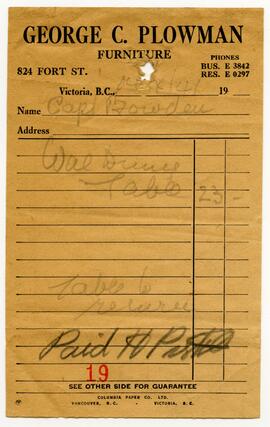 GEORGE C. PLOWMAN
FURNITURE
824 FORT ST.
PHONES
BUS. E 3842
RES. E 0297
Victoria, B.C., 19
Name Capt Bowden
Address
Wal Dining
Table 23 -
Table to
Paid H P
19
SEE OTHER SIDE FOR GUARANTEE
COLUMBIA PAPER CO. LTD.
VANCOUVER, B. C. - VICTORIA, B. C.